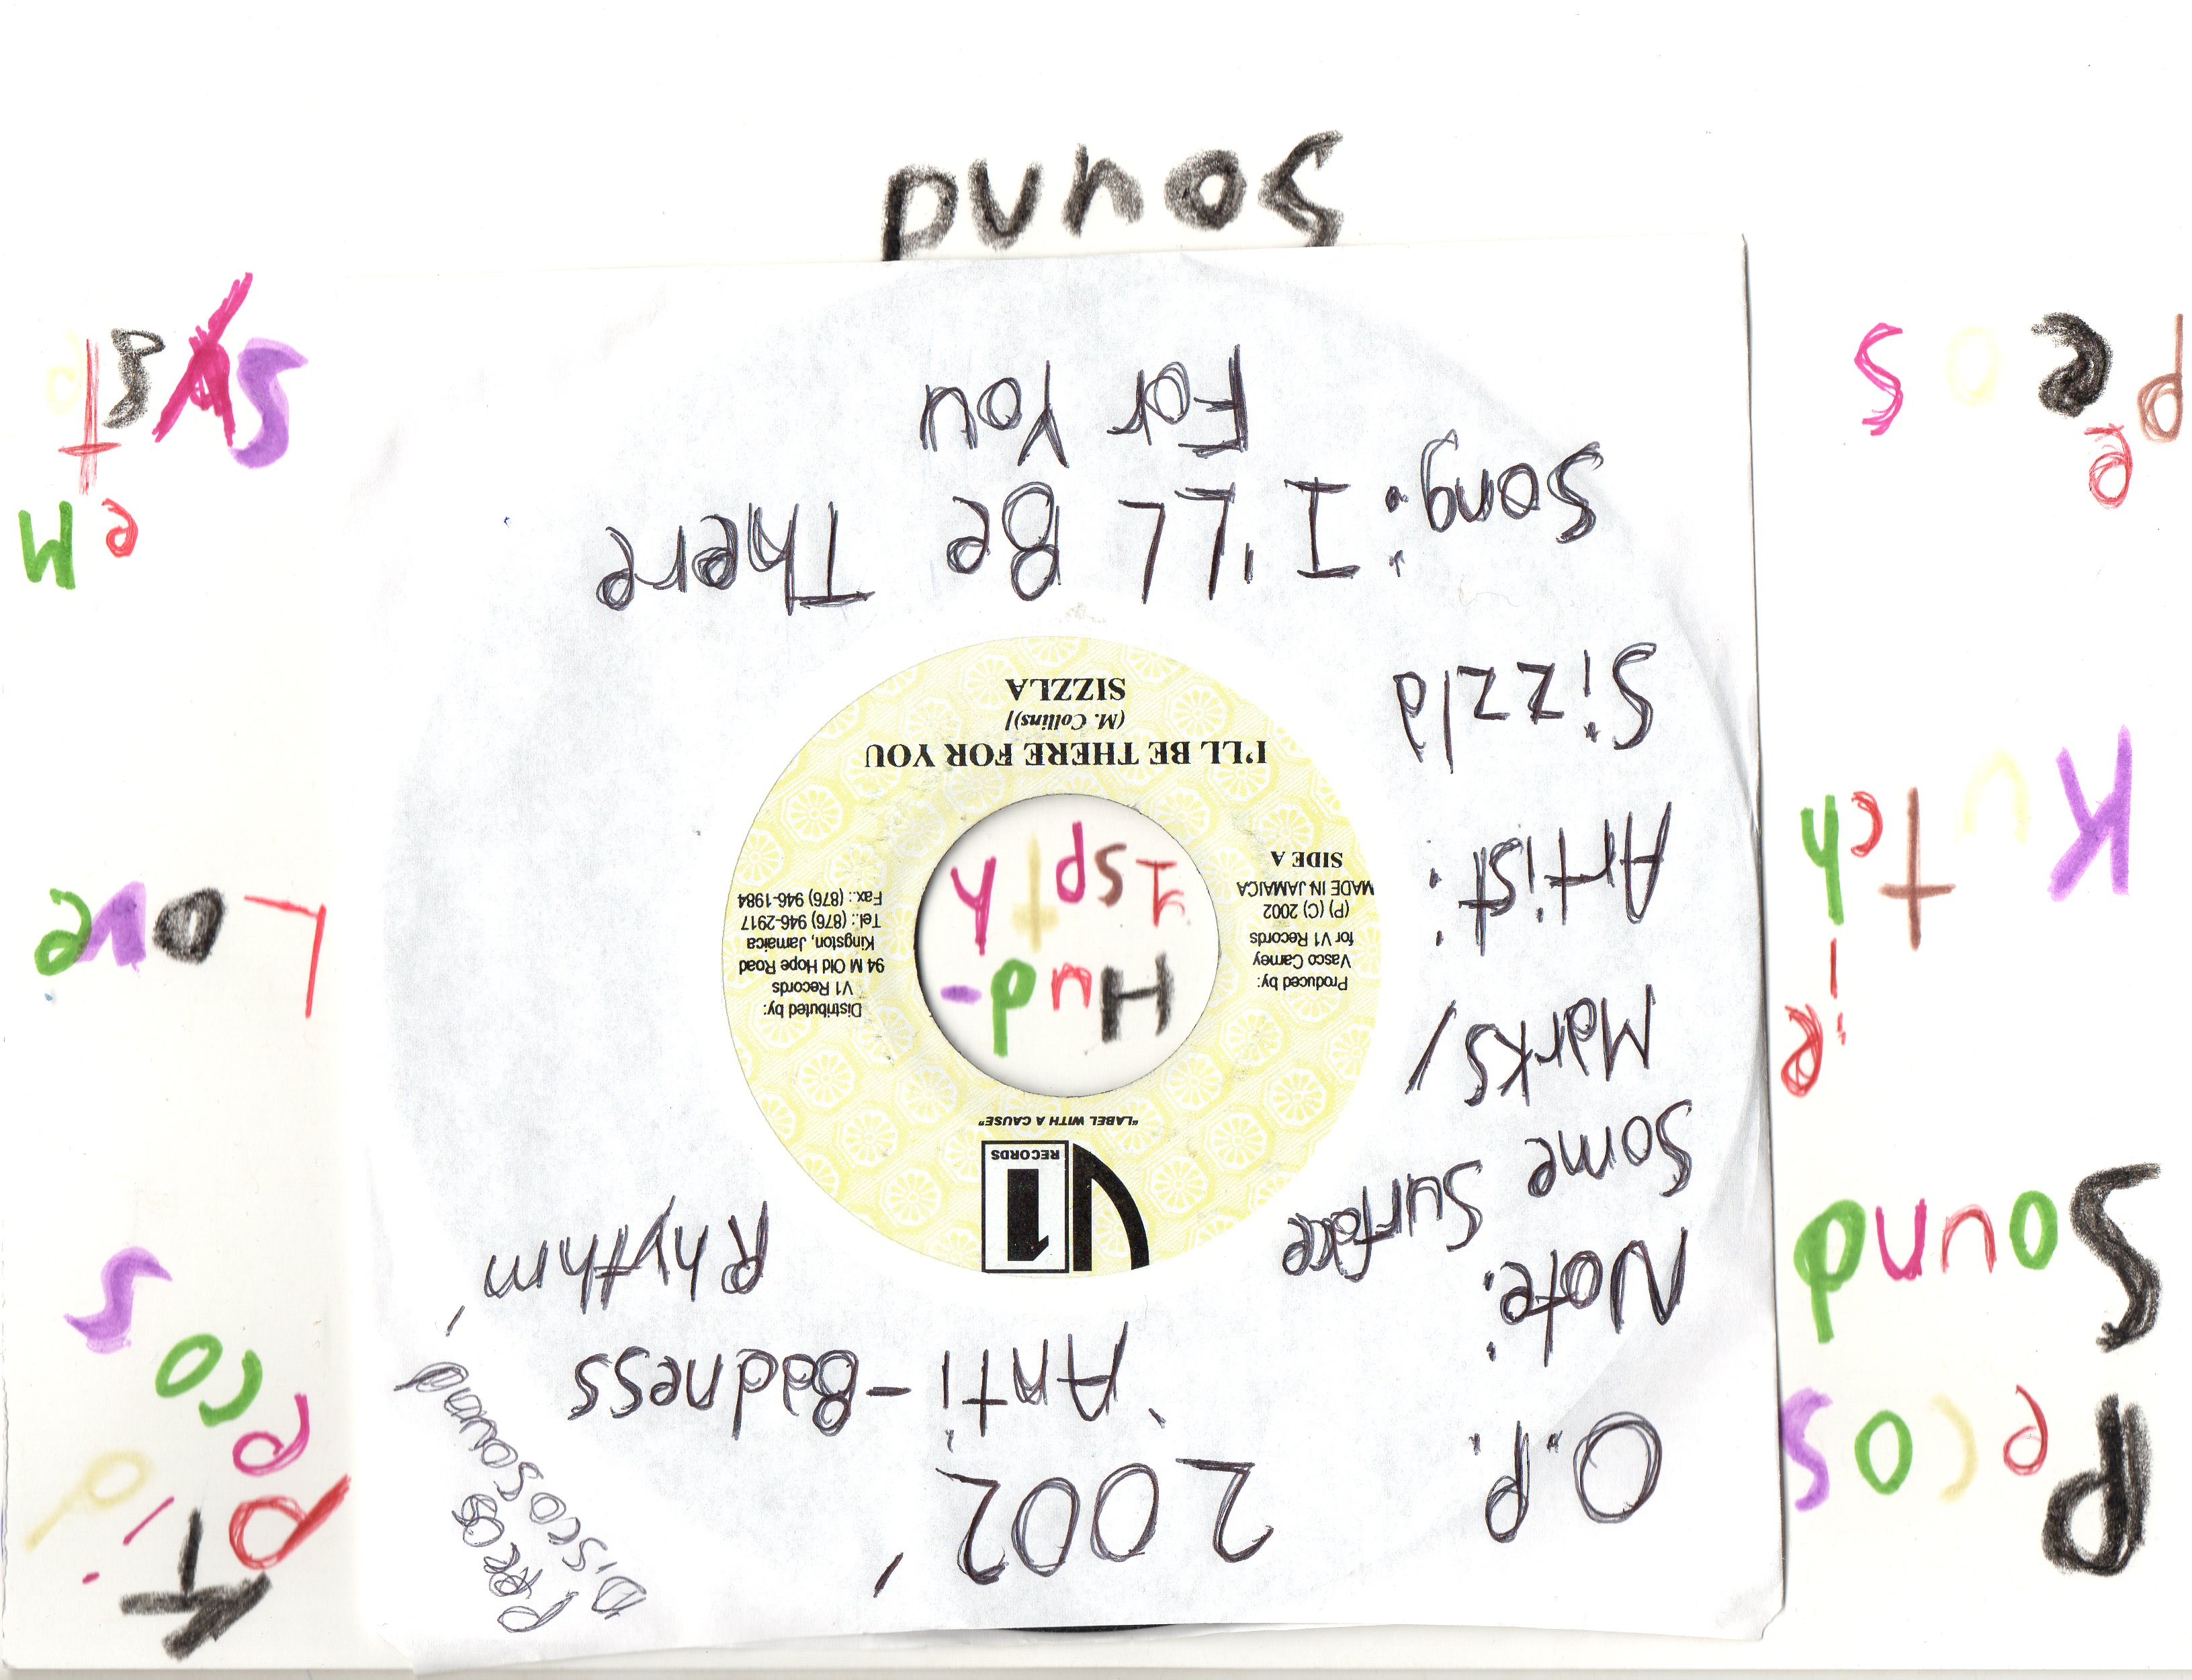 Pecos
O.P.
2002,
PRECOS
Disco Sound
Pecos
Sound
Note:
Some Surface
Marks/
'Anti-Badness
Rhythm'
V1
RECORDS
"LABEL WITH A CAUSE"
Produced by:
Vasco Carney
for V1 Records
(P) (C) 2002
MADE IN JAMAICA
SIDE A
Distributed by:
V1 Records
94 M Old Hope Road
Kingston, Jamaica
Tel.: (876) 946-2917
Fax.: (876) 946-1984
Love
Artist:
Sizzla
I'LL BE THERE FOR YOU
(M. Collins)]
SIZZLA
Song: I'LL Be There
For You
System
Sound